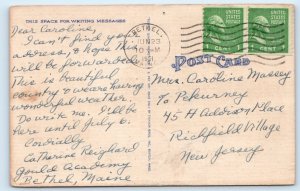 THIS SPACE FOR WRITING MESSAGES
Dear Caroline,
I can't find your
address, & hope this
will be forwarded.
This is beautiful
country & we are having
wonderful weather.
Do write me. I'll be
here until July 6.
Cordially
Catherine Reighard
Gould Academy
Bethel, Maine
BETHEL,
JUN 23
UNITED STATES
POSTAGE
1 CENT 1
UNITED STATES
POSTAGE
1 CENT 1
POST CARD
Mrs. Caroline Massey
℅ Pekurney
45 H Addison Place
Richfield Village
New Jersey